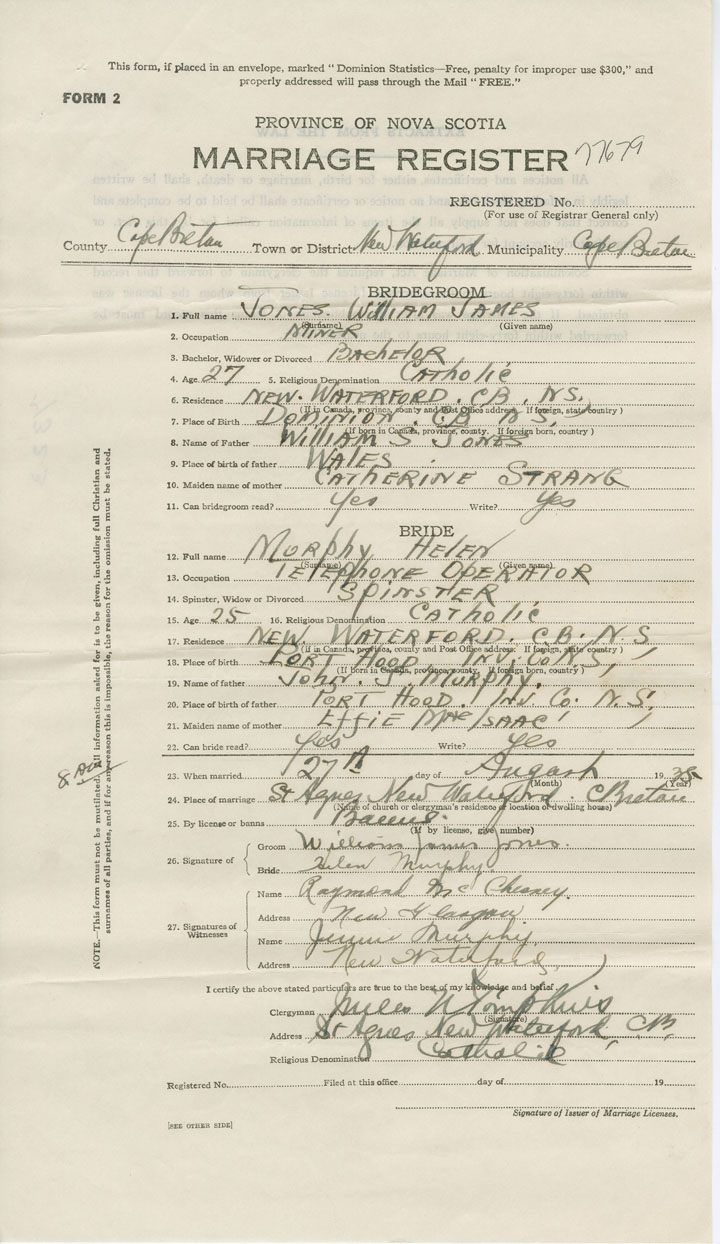 This form, if placed in an envelope, marked " Dominion Statistics—Free, penalty for improper use $300," and
properly addressed will pass through the Mail " FREE."
FORM 2
PROVINCE OF NOVA SCOTIA
MARRIAGE REGISTER 77679
REGISTERED No.
(For use of Registrar General only)
County Cape Breton Town or District New Waterford Municipality Cape Breton
BRIDEGROOM
1. Full name JONES. William JAMES
(Surname) (Given name)
2. Occupation MINER
3. Bachelor, Widower or Divorced Bachelor
4. Age 27 5. Religious Denomination Catholic
6. Residence NEW. WATERFORD. CB. NS.
(If in Canada, province, county and Post Office address. If foreign, state country )
7. Place of Birth DOMINION. CB NS.
(If born in Canada, province, county. If foreign born, country )
8. Name of Father William S JONES
9. Place of birth of father WALES
10. Maiden name of mother CATHERINE STRANG
11. Can bridegroom read? yes Write? yes
BRIDE
12. Full name Murphy HELEN
(Surname) (Given name)
13. Occupation TELEPHONE OPERATOR
14. Spinster, Widow or Divorced SPINSTER
15. Age 25 16. Religious Denomination CATHOLIC
17. Residence NEW. WATERFORD. C.B. N.S
(If in Canada, province, county and Post Office address. If foreign, state country )
18. Place of birth PORT HOOD INV. CO. N.S,
(If born in Canada, province, county. If foreign born, country )
19. Name of father John. J. Murphy.
20. Place of birth of father PORT HOOD. INV. Co. N.S.
21. Maiden name of mother Effie Mac Isaac
22. Can bride read? yes Write? yes
23. When married 27th day of August 1935
(Month) (Year)
24. Place of marriage St Agnes New Waterford. C Breton
(Name of church or clergyman's residence or location of dwelling house)
25. By license or banns Banns.
(If by license, give number)
26. Signature of
Groom William James Jones.
Bride Helen Murphy.
27. Signatures of Witnesses
Name Raymond Mc Chesney.
Address New Glasgow.
Name Jennie Murphy
Address New Waterford,
I certify the above stated particulars are true to the best of my knowledge and belief.
Clergyman Miles N Tompkins
(Signature)
Address St Agnes New Waterford, CB,
Religious Denomination Catholic
Registered No. Filed at this office day of 19
Signature of Issuer of Marriage Licenses.
[SEE OTHER SIDE]
NOTE.—This form must not be mutilated. All information asked for is to be given, including full Christian and
surnames of all parties, and if for any reason this is impossible, the reason for the omission must be stated.